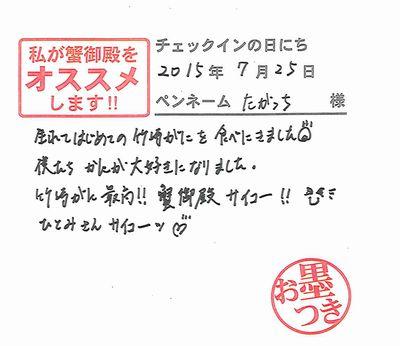 私が蟹御殿を
オススメ
します!!
チェックインの日にち
2015年 7月25日
ペンネーム たかっち 様
産れてはじめての竹崎がにを食べにきました
僕たち かにが大好きになりました。
竹崎がに最高!! 蟹御殿サイコー!!
ひとみさんサイコーッ
お墨つき